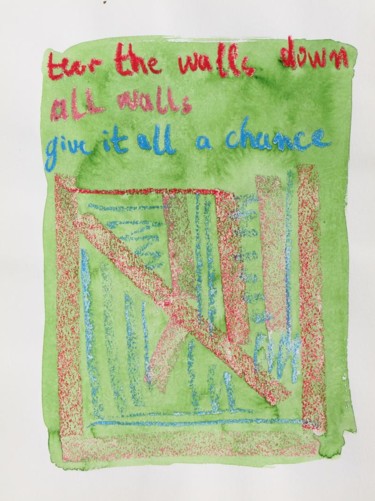 tear the walls down
all walls
give it all a chance